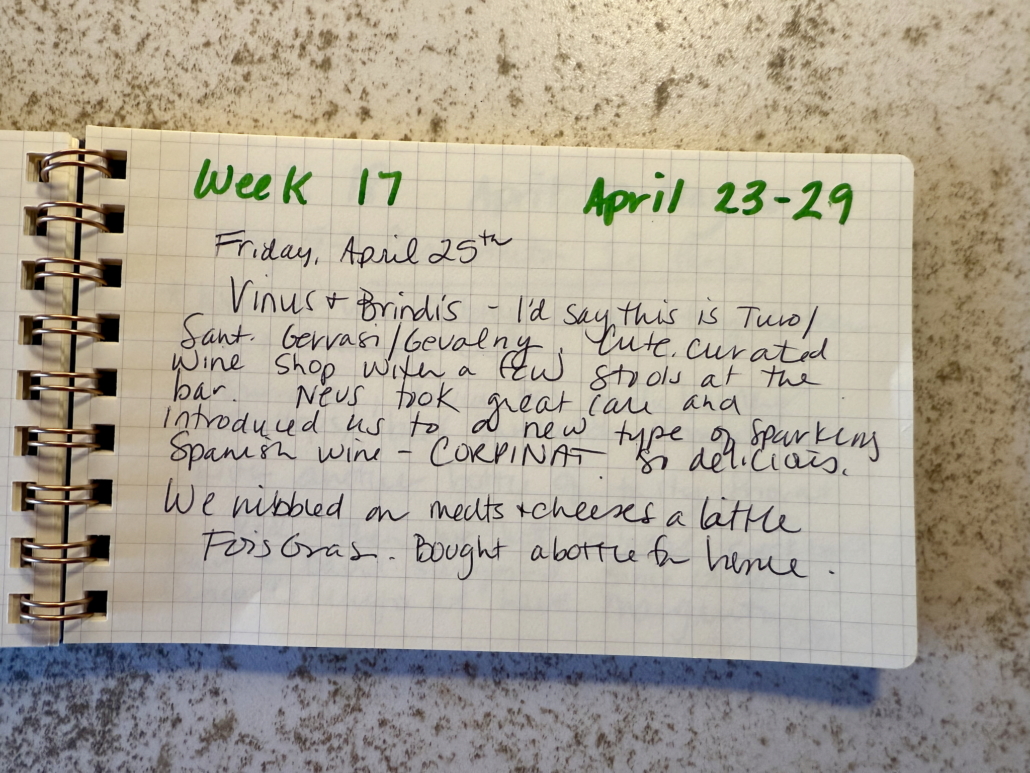 Week 17 April 23-29
Friday, April 25th
Vinus + Brindis - I'd say this is Turo/
Sant. Gervasi/Gevalny. Cute, curated
wine shop with a few stools at the
bar. Neus took great care and
introduced us to a new type of sparkling
Spanish wine - CORPINAT. So delicious.
We nibbled on meats + cheeses a little
Fois Gras. Bought a bottle for home.